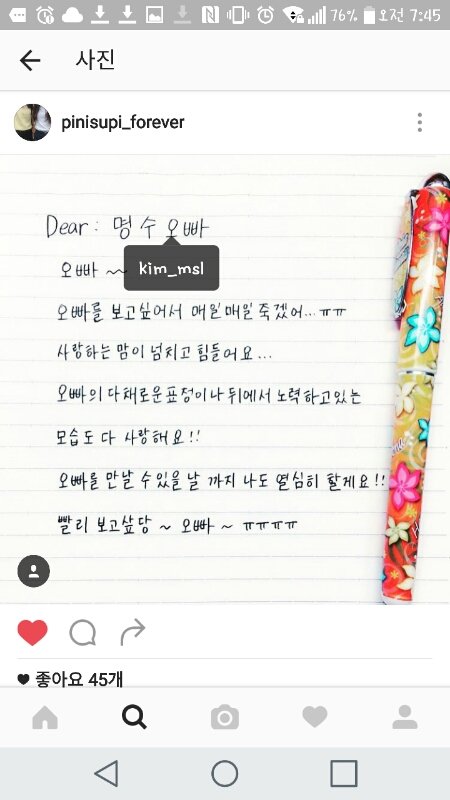 76% 오전 7:45
사진
pinisupi_forever
Dear: 명수오빠
오빠 ~~
kim_msl
오빠를 보고싶어서 매일매일 죽겠어...ㅠㅠ
사랑하는 맘이 넘치고 힘들어요...
오빠의 다채로운표정이나 뒤에서 노력하고있는
모습도 다 사랑해요!!
오빠을 만날 수 있을 날 까지 나도 열심히 할게요!!
빨리 보고싶당 ~ 오빠 ~ ㅠㅠㅠㅠ
좋아요 45개